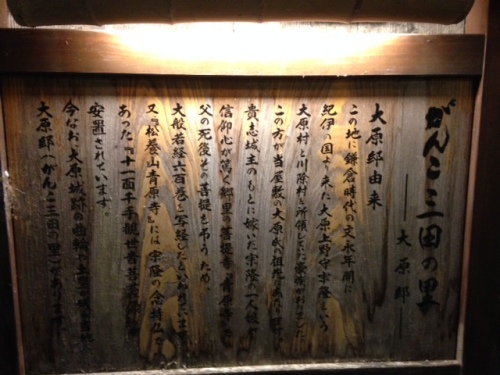 がんこ三田の里
大原邸
大原邸由来
この地に鎌倉時代の文永年間に
紀伊の国より来た大原上野守宗隆という
大原村と川除村を所領していた豪族がおりました。
この方が当屋敷の大原氏の祖先
貴志城主のもとに嫁いだ宗隆の一人娘が
信仰心が篤く郷里の菩提寺青原寺
父の死後その菩提を弔うため
大般若経六百巻を写経したといわれています。
又『松巌山青原寺』には宗隆の念持仏で
あった『十一面千手観世音菩薩
安置されています。
今なお大原城跡の
大原邸(がんこ三田の里)があります。